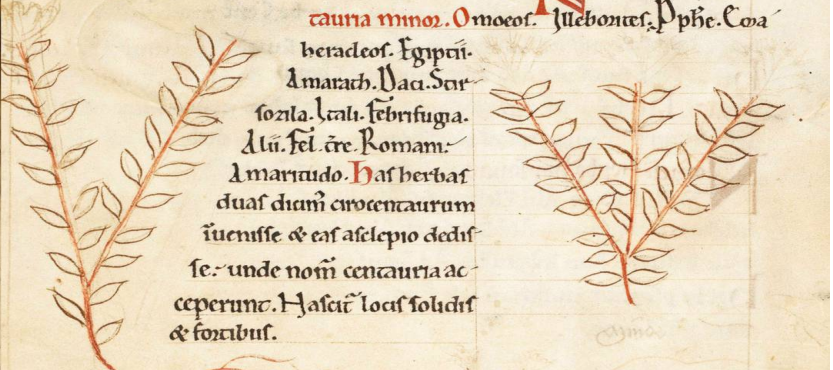 tauria minor. Omoeos. Illeborites. Pphē. Ema
heracleos. Egiptii.
Amarach. Daci. Stir
sozila. Itali. Febrifugia.
Alii. Fel. t̄re. Romani.
Amaritudo. Has herbas
duas dicun̄t cirocentaurum
īuenisse & eas asclepio dedis
se. unde nom̄ centauria ac
ceperunt. Nascit̄ locis solidis
& fortibus.